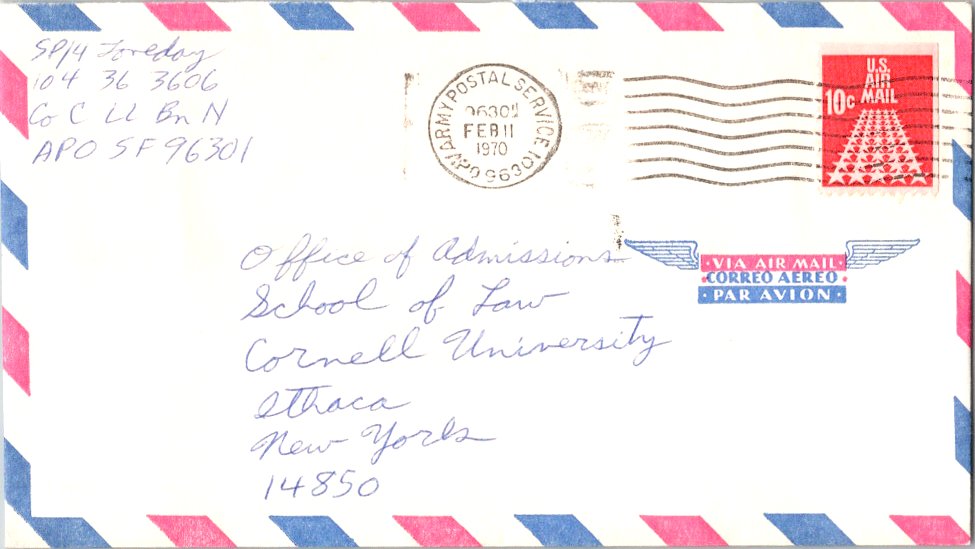 SP/4 Loreday
104 36 3606
Co C LL Bn N
APO SF 96301
ARMY POSTAL SERVICE
APO 96301
FEB 11
1970
U.S.
AIR
MAIL
10c
Office of Admissions
School of Law
Cornell University
Ithaca
New York
14850
· VIA AIR MAIL ·
· CORREO AEREO ·
· PAR AVION ·